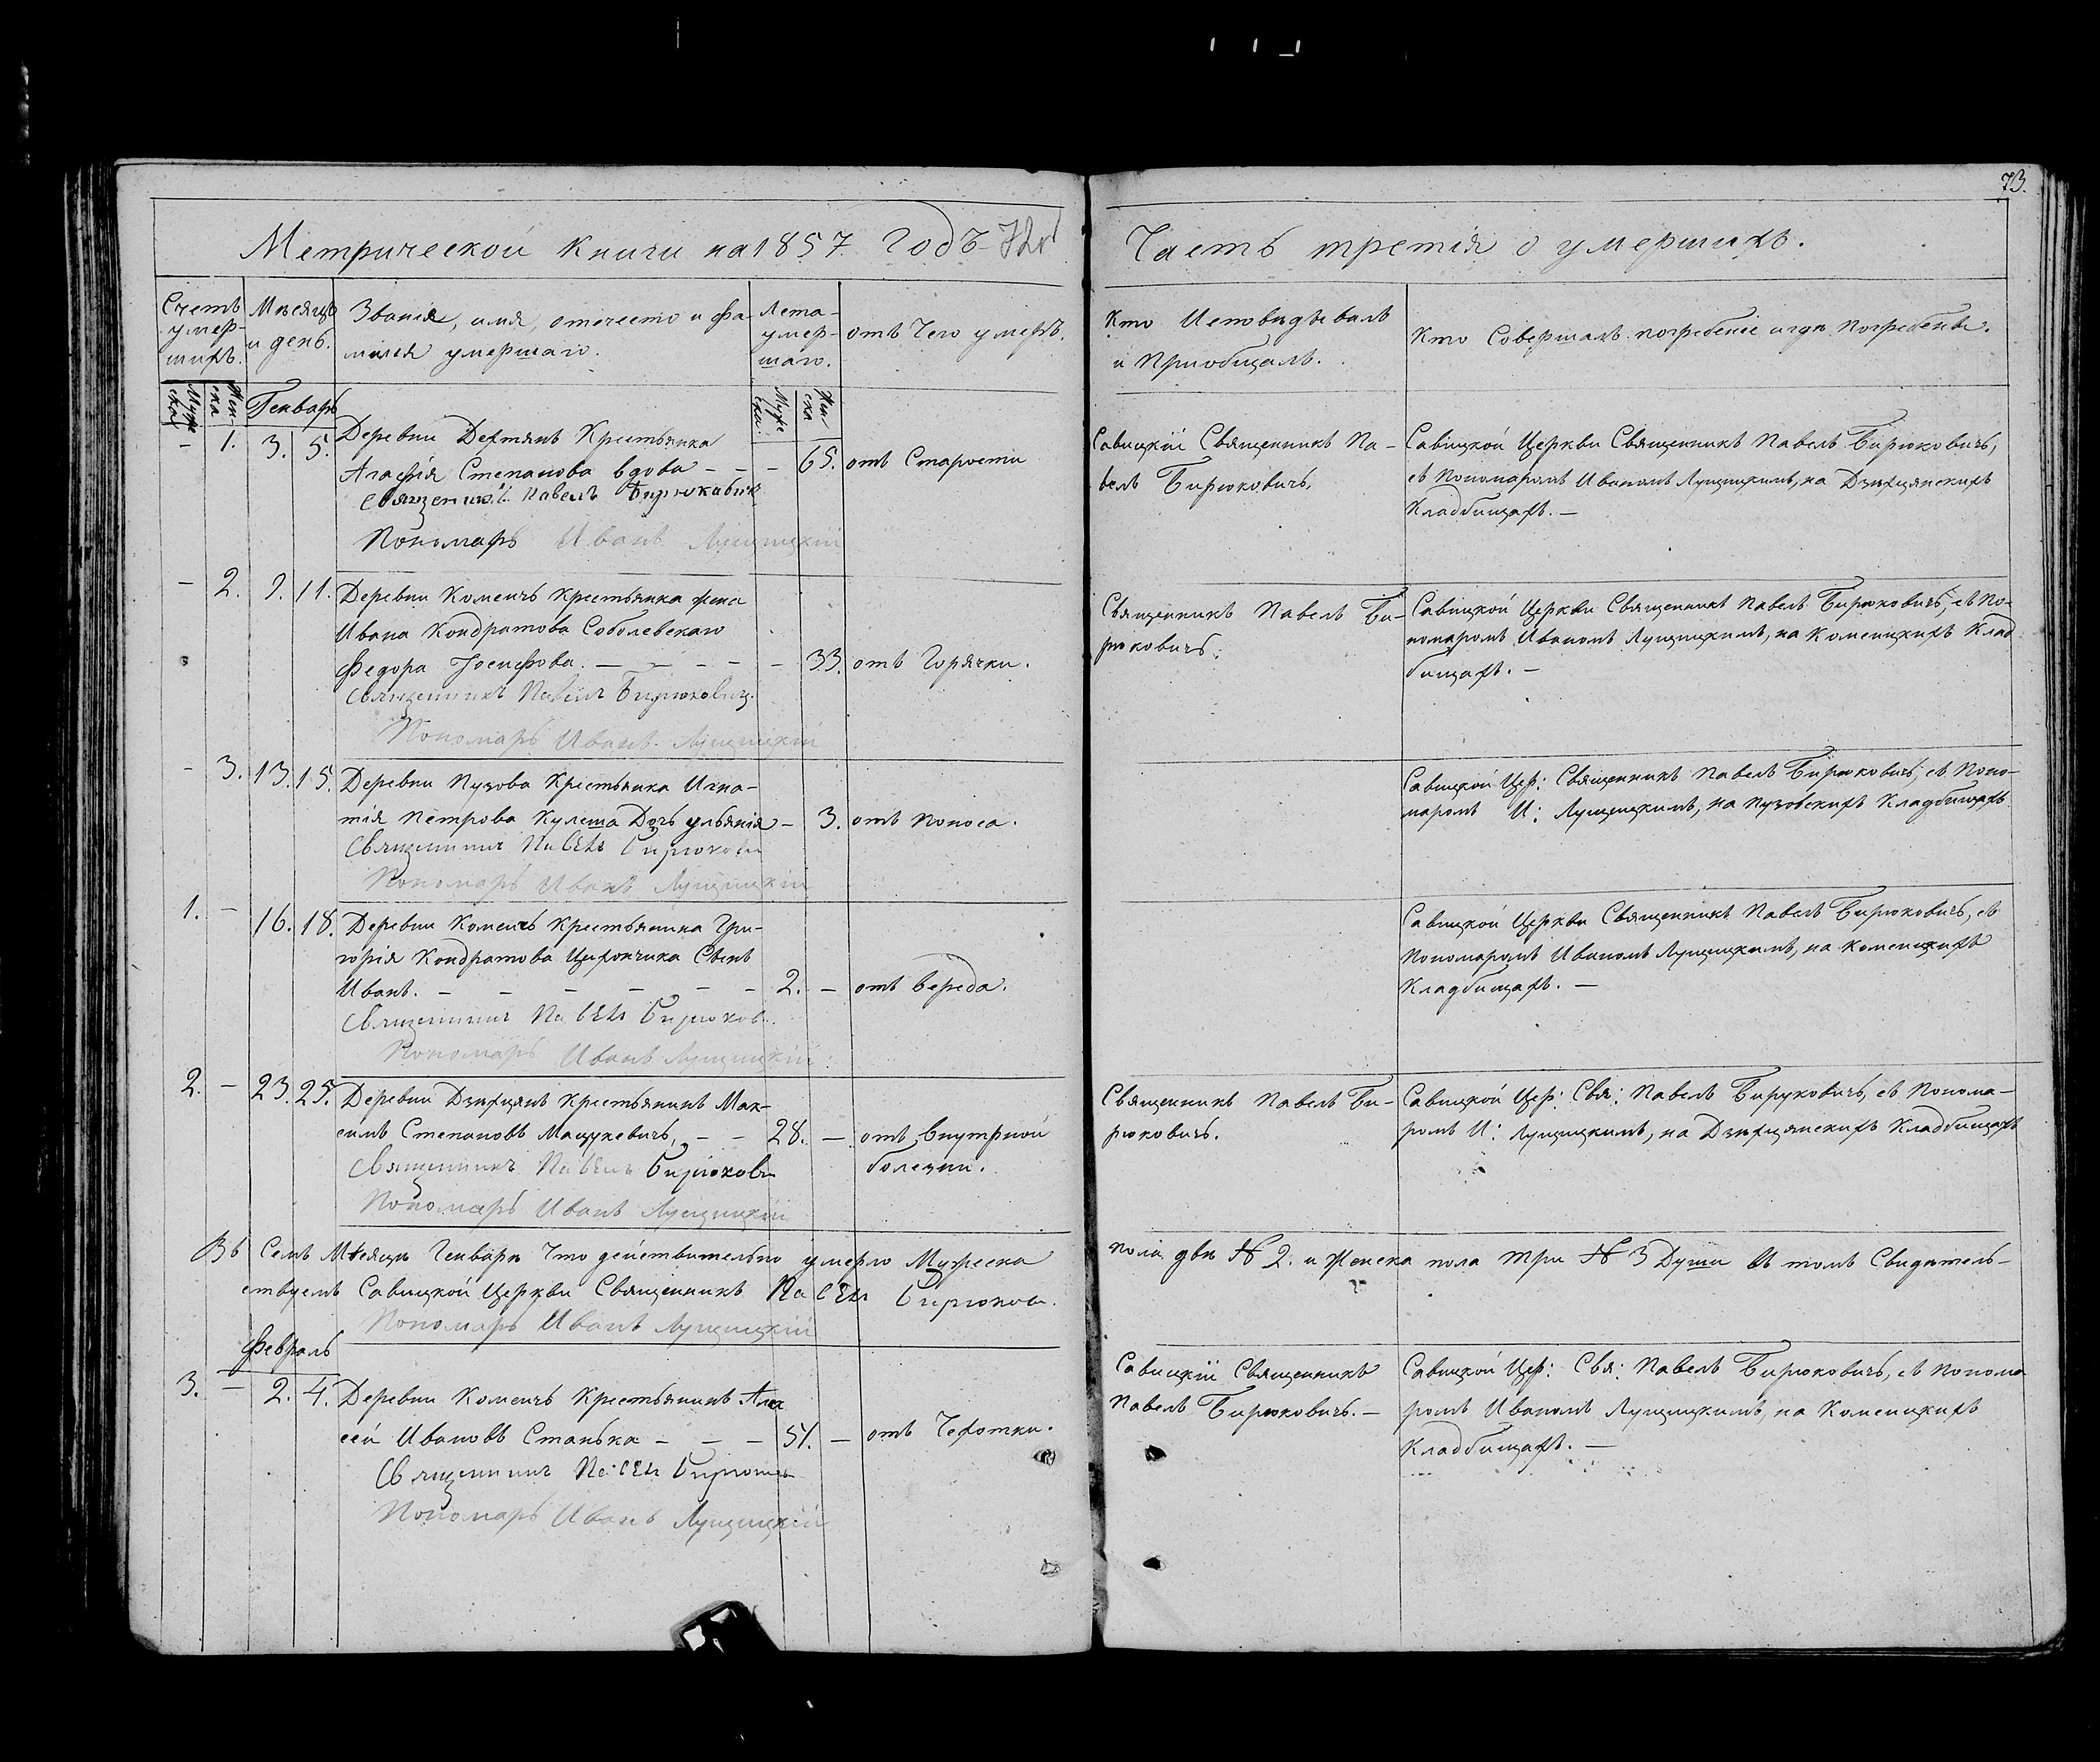 73.
Метрической Книги на 1857. Годъ
Часть третія о умершихъ.
Счетъ умер- шихъ.
Мѣсяцъ и день.
Званія, имя, отечество и фа-
милія умершаго.
Лета умер- шаго.
отъ Чего умеръ.
Кто Исповѣдывалъ
и Приобщалъ.
Кто Совершалъ погребеніе и гдѣ погребены.
Муже ска
Жен ска
Генварь
Муже ска.
Жен ска
- 1. 3. 5. Деревни Дехтянъ Крестьянка
Агафія Степанова вдова - - - 65. отъ Старости
Священникъ Павелъ Бирюковичъ
Пономарь Иванъ Лущицкій
Савицкій Священникъ Па-
велъ Бирюковичъ.
Савицкой Церкви Священникъ Павелъ Бирюковичъ,
съ Пономаромъ Иваномъ Лущицкимъ, на Дзѣхцянскихъ
Кладбищахъ. -
- 2. 9. 11. Деревни Коменъ Крестьянка жена
Ивана Кондратова Соболевскаго
Федора Іосифова. - - - - - 33. отъ Горячки.
Священникъ Павелъ Бирюковичъ.
Пономарь Иванъ Лущицкій
Священникъ Павелъ Би-
рюковичъ.
Савицкой Церкви Священникъ Павелъ Бирюковичъ, съ По-
номаромъ Иваномъ Лущицкимъ, на Коменицкихъ Клад
бищахъ. -
- 3. 13. 15. Деревни Пузова Крестьянка Игна-
тія Петрова Кулеша Дочь Ульянія - 3. отъ Поноса.
Священникъ Павелъ Бирюкови
Пономарь Иванъ Лущицкій
Савицкой Цер: Священникъ Павелъ Бирюковичъ, съ Поно-
маромъ И: Лущицкимъ, на Пузовскихъ Кладбищахъ
1. - 16. 18. Деревни Коменъ Крестьянина Гри-
горія Кондратова Цихончика Сынъ
Иванъ. - - - - - - - 2. - отъ Вереда.
Священникъ Павелъ Бирюков
Пономарь Иванъ Лущицкій
Савицкой Церкви Священникъ Павелъ Бирюковичъ, съ
Пономаромъ Иваномъ Лущицкимъ, на Коменицкихъ
Кладбищахъ. -
2. - 23. 25. Деревни Дзѣхцянъ Крестьянинъ Мак-
симъ Степановъ Мацукевичъ, - - 28. - отъ Внутрной
болезни.
Священникъ Павелъ Бирюкови
Пономарь Иванъ Лущицкій
Священникъ Павелъ Би-
рюковичъ.
Савицкой Цер: Свя: Павелъ Бируковичъ, съ Понома-
ромъ И: Лущицкимъ, на Дзѣхцянскихъ Кладбищахъ
Въ Семъ Мѣсяцѣ Генварѣ Что действительно умерло Мужеска
пола двѣ № 2. и Женска пола три № 3 Души въ томъ Свидѣтель-
ствуемъ Савицкой Церкви Священникъ Павелъ Бирюкови.
Пономарь Иванъ Лущицкій
Февраль
3. - 2. 4. Деревни Коменъ Крестьянинъ Алек
сей Ивановъ Станька - - - 51. - отъ Чехотки.
Священникъ Павелъ Бирюкови
Пономарь Иванъ Лущицкій
Савицкій Священникъ
Павелъ Бирюковичъ. -
Савицкой Цер: Свя: Павелъ Бирюковичъ, съ Понома
ромъ Иваномъ Лущицкимъ, на Коменицкихъ
Кладбищахъ. -